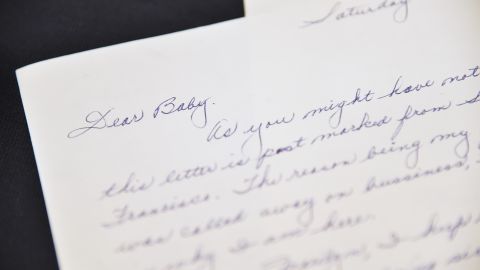 Saturday
Dear Baby.
As you might have not
this letter is post marked from S
Francisco. The reason being my
was called away on bussiness,
I am here.
I keep